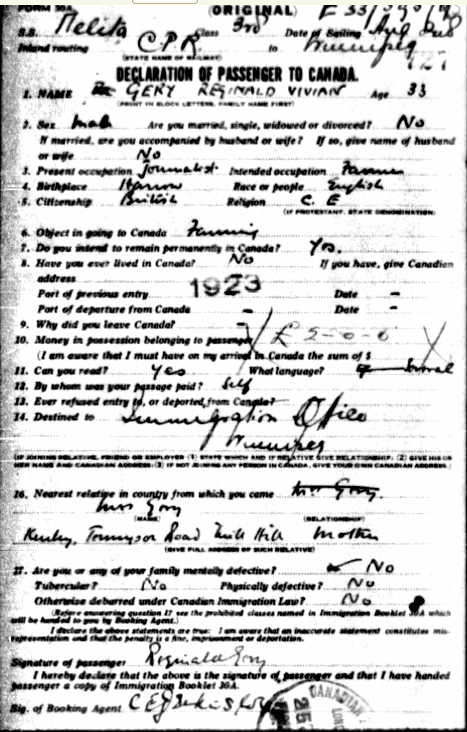 FORM 30A (ORIGINAL)
S.S. Melita Class 3rd Date of Sailing
Inland routing C.P.R. to Winnipeg
(STATE NAME OF RAILWAY)
DECLARATION OF PASSENGER TO CANADA.
1. NAME GERY REGINALD VIVIAN Age 33
(PRINT IN BLOCK LETTERS, FAMILY NAME FIRST)
2. Sex male Are you married, single, widowed or divorced? No
If married, are you accompanied by husband or wife? If so, give name of husband
or wife No
3. Present occupation Journalist Intended occupation Farmer
4. Birthplace Harrow Race or people English
5. Citizenship British Religion C. E
(IF PROTESTANT, STATE DENOMINATION)
6. Object in going to Canada Farming
7. Do you intend to remain permanently in Canada? Yes.
8. Have you ever lived in Canada? No If you have, give Canadian
address
1923
Port of previous entry Date -
Port of departure from Canada - Date -
9. Why did you leave Canada? -
10. Money in possession belonging to passenger £ 5-0-0
(I am aware that I must have on my arrival in Canada the sum of $
11. Can you read? Yes What language? Several
12. By whom was your passage paid? Self
13. Ever refused entry to, or deported, from Canada?
14. Destined to Immigration Office
Winnipeg
(IF JOINING RELATIVE, FRIEND OR EMPLOYER (1) STATE WHICH AND IF RELATIVE GIVE RELATIONSHIP: (2) GIVE HIS OR
HER NAME AND CANADIAN ADDRESS: (3) IF NOT JOINING ANY PERSON IN CANADA, GIVE YOUR OWN CANADIAN ADDRESS)
16. Nearest relative in country from which you came
Mrs Gery
(NAME) (RELATIONSHIP)
Tennyson Road Mill Hill Mother
(GIVE FULL ADDRESS OF SUCH RELATIVE)
17. Are you or any of your family mentally defective? No
Tubercular? No Physically defective? No
Otherwise debarred under Canadian Immigration Law? No
(Before answering question 17 see the prohibited classes named in Immigration Booklet 30A which
will be handed to you by Booking Agent.)
I declare the above statements are true: I am aware that an inaccurate statement constitutes mis-
representation and that the penalty is a fine, imprisonment or deportation.
Signature of passenger Reginald Gery
I hereby declare that the above is the signature of passenger and that I have handed
passenger a copy of Immigration Booklet 30A.
Sig. of Booking Agent
CANADIAN